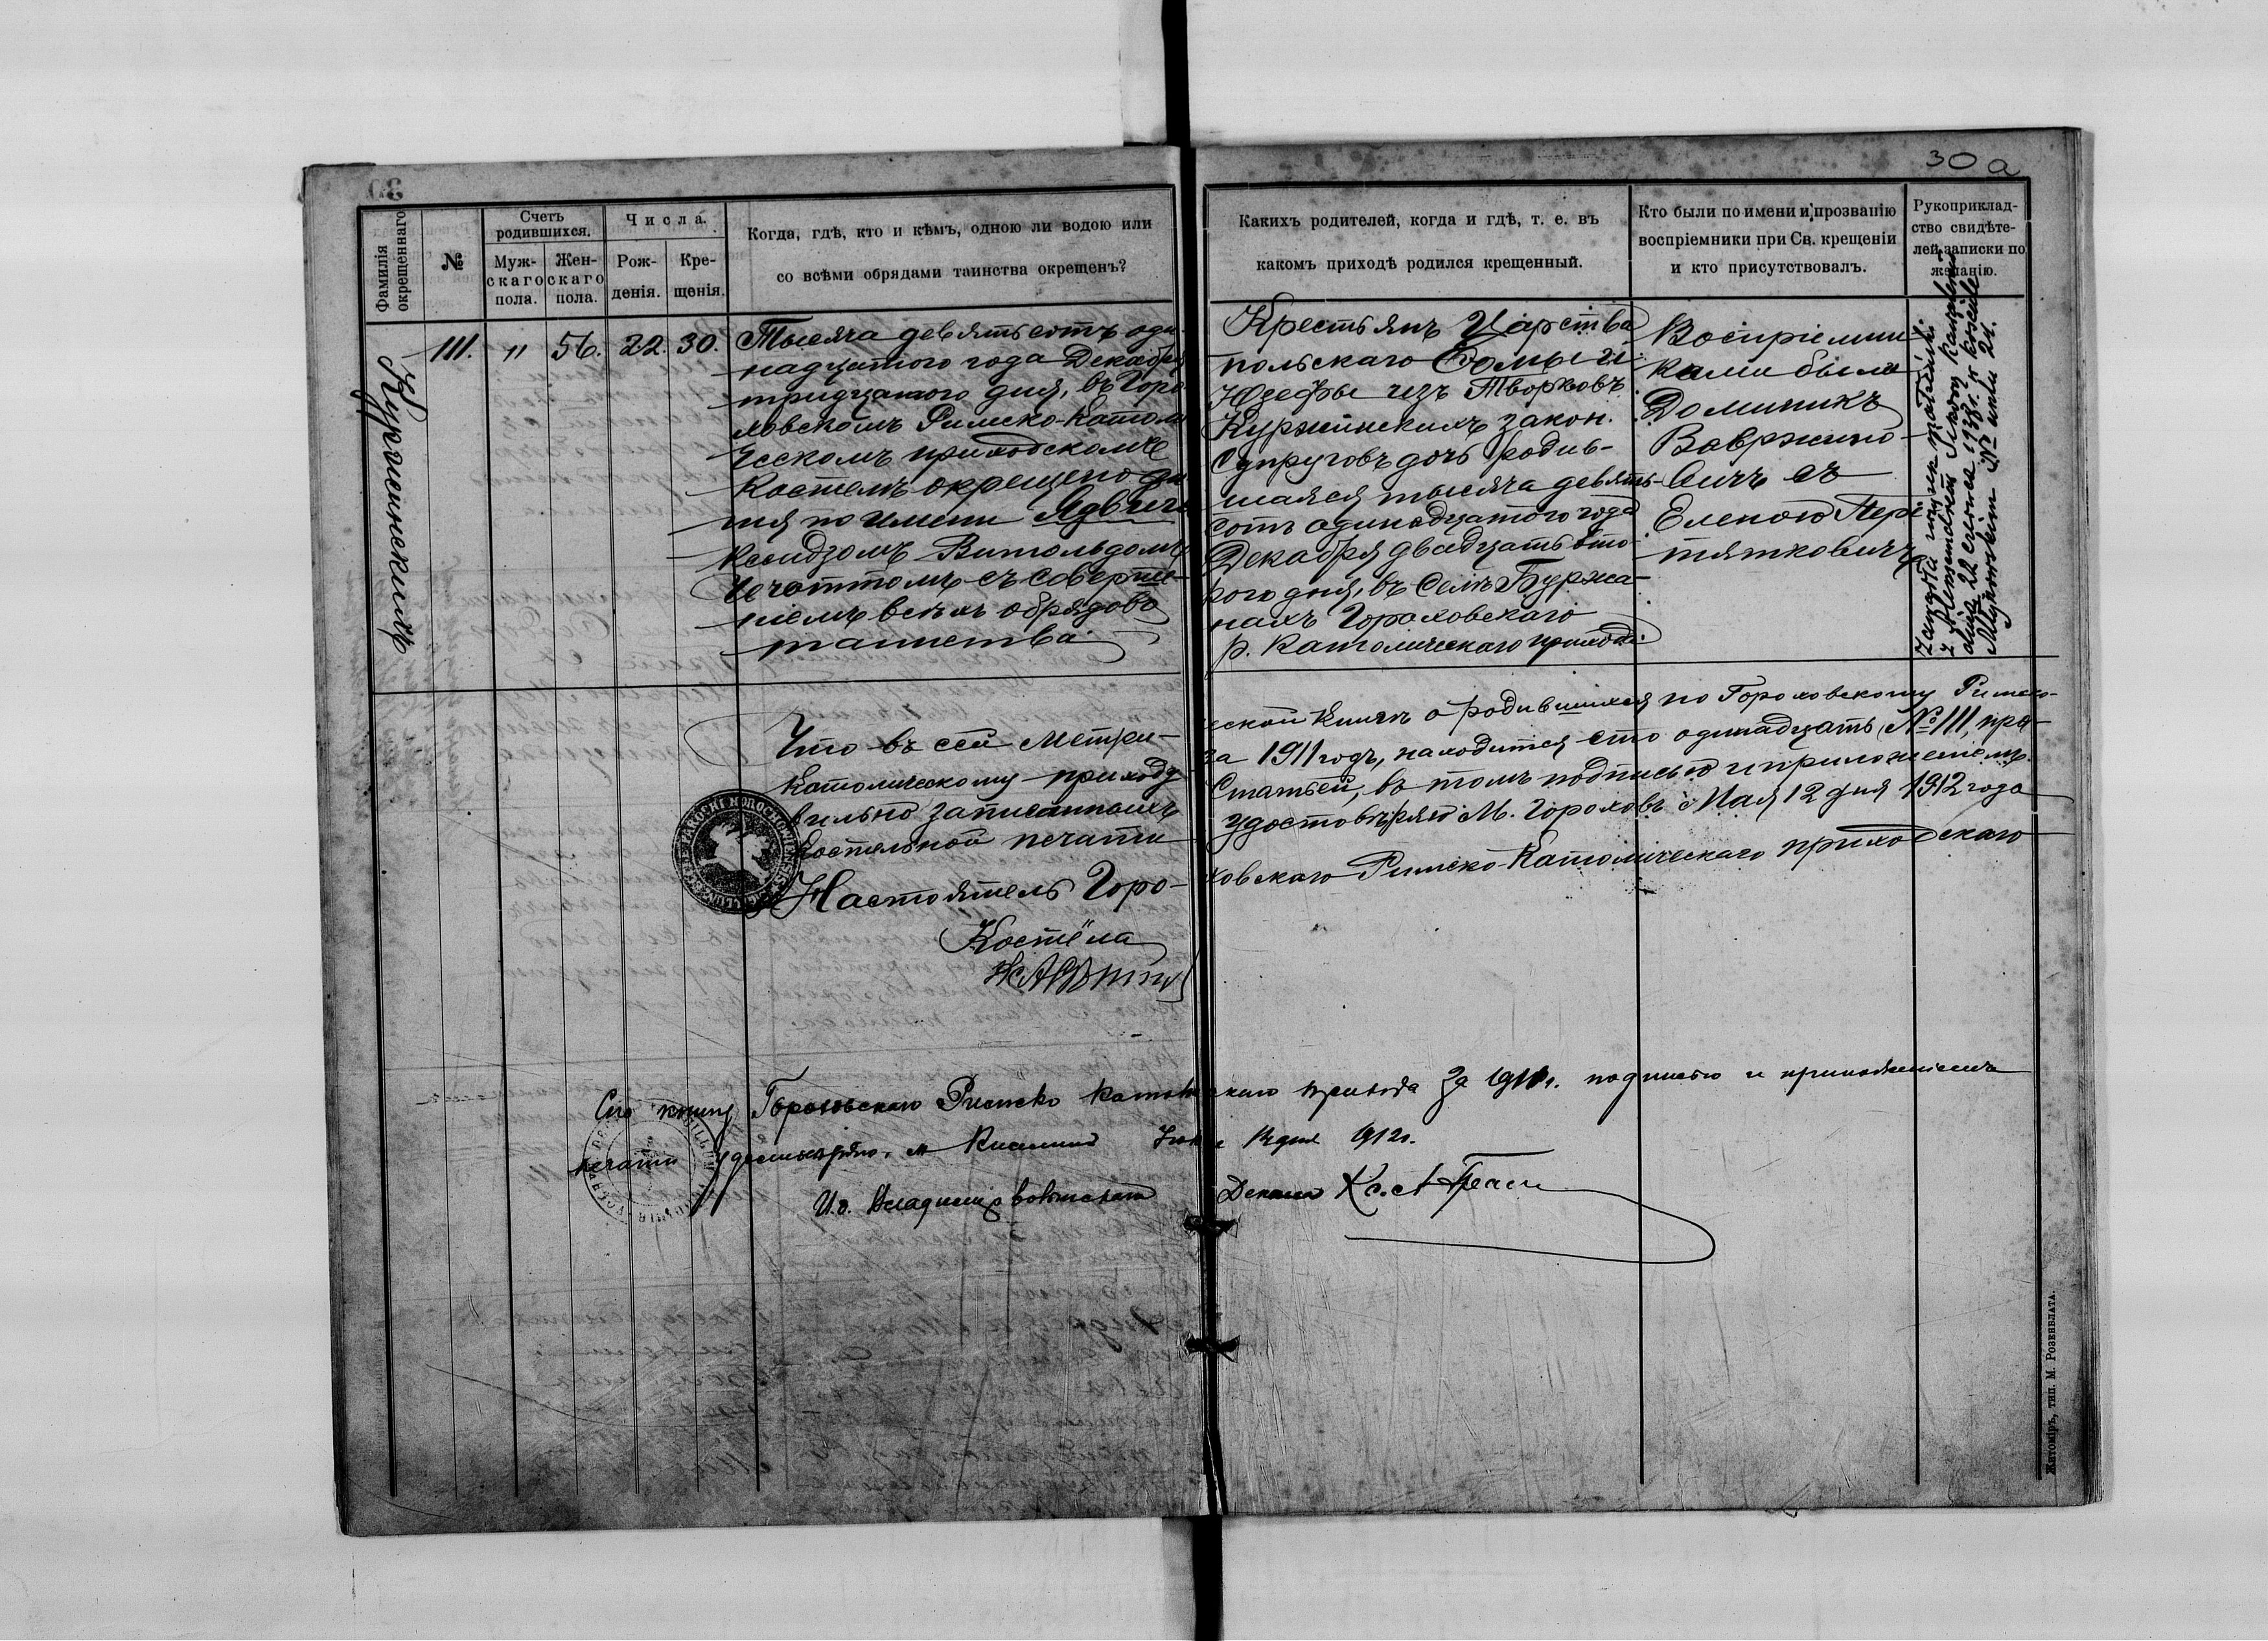 30 а
Фамилія окрещеннаго
№
Счетъ родившихся.
Муж-
скаго
пола.
Жен-
скаго
пола.
Числа.
Рож-
денія.
Кре-
щенія.
Когда, гдѣ, кто и кѣмъ, одною ли водою или
со всѣми обрядами таинства окрещенъ?
Какихъ родителей, когда и гдѣ, т. е. въ
какомъ приходѣ родился крещенный.
Кто были по имени и прозванію
воспріемники при Св. крещеніи
и кто присутствовалъ.
Рукоприклад-
ство свидѣте-
лей записки по
желанію.
111. " 56. 22. 30.
Тысяча девятьсотъ оди-
надцатого года Декабря
тридцатого дня, въ Горо
ховскомъ Римско-Католи
ческомъ приходскомъ
Костелѣ окрещено ди
тя по имени Ядвига
Ксендзомъ Витольдомъ
съ соверше-
ніемъ всѣхъ обрядовъ
таинства.
Крестьянъ Царства
польскаго Фомы и
Юзефы изъ Творковъ
Куржинскихъ закон.
супруговъ дочь родив-
шаяся тысяча девять-
сотъ одинадцатого года
Декабря двадцать вто-
рого дня, въ Селѣ Буржа-
нахъ Гороховскаго
р. Католическаго прихода.
Воспріемни
ками были
Доминикъ
Вавржино-
вичъ съ
Еленою Пере
тятковичъ
Zawarła związek małżeński
z
dnia 22 czerwca 1938 r. w kościele
№ aktu 24.
Что въ сей Метри-
ческой Книгѣ о родившихся по Гороховскому Римско-
Католическому приходу
за 1911 годъ, находится сто одинадцать, № 111, пра-
вильно записанныхъ
Статьей, въ томъ подписью и приложеніемъ
Костельной печати
удостовѣряю М. Гороховъ Мая 12 дня 1912 года
Настоятель Горо-
ховскаго Римско-Католическаго приходскаго
Костёла
Сію книгу Гороховскаго Римско Католическаго прихода за 1911 г. подписью и приложеніемъ
печати удостовѣряю. м Киселинъ дня 1912 г.
И. д. Владиміръ Волынскаго Декана
Житоміръ, тип. М. Розенблата.